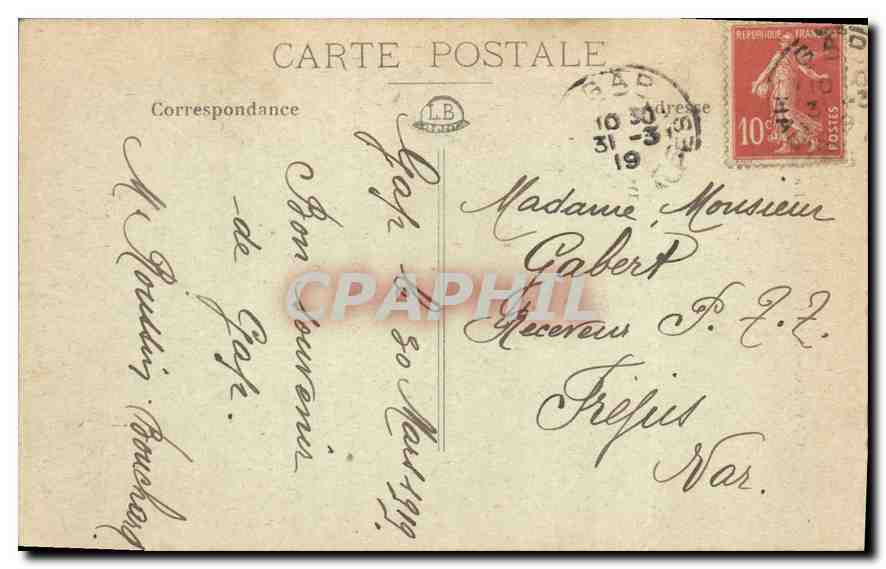 CARTE POSTALE
Correspondance
LB
Adresse
REPUBLIQUE FRANCAISE
10 c
POSTES
GAP
10 30
31 - 3
19
Gap le 30 Mars 1919.
Bon souvenir
de Gap.
M Roussin Bouchard
Madame, Monsieur
Gabert
Receveur P. T. T.
Fréjus
Var.
CPAPHIL